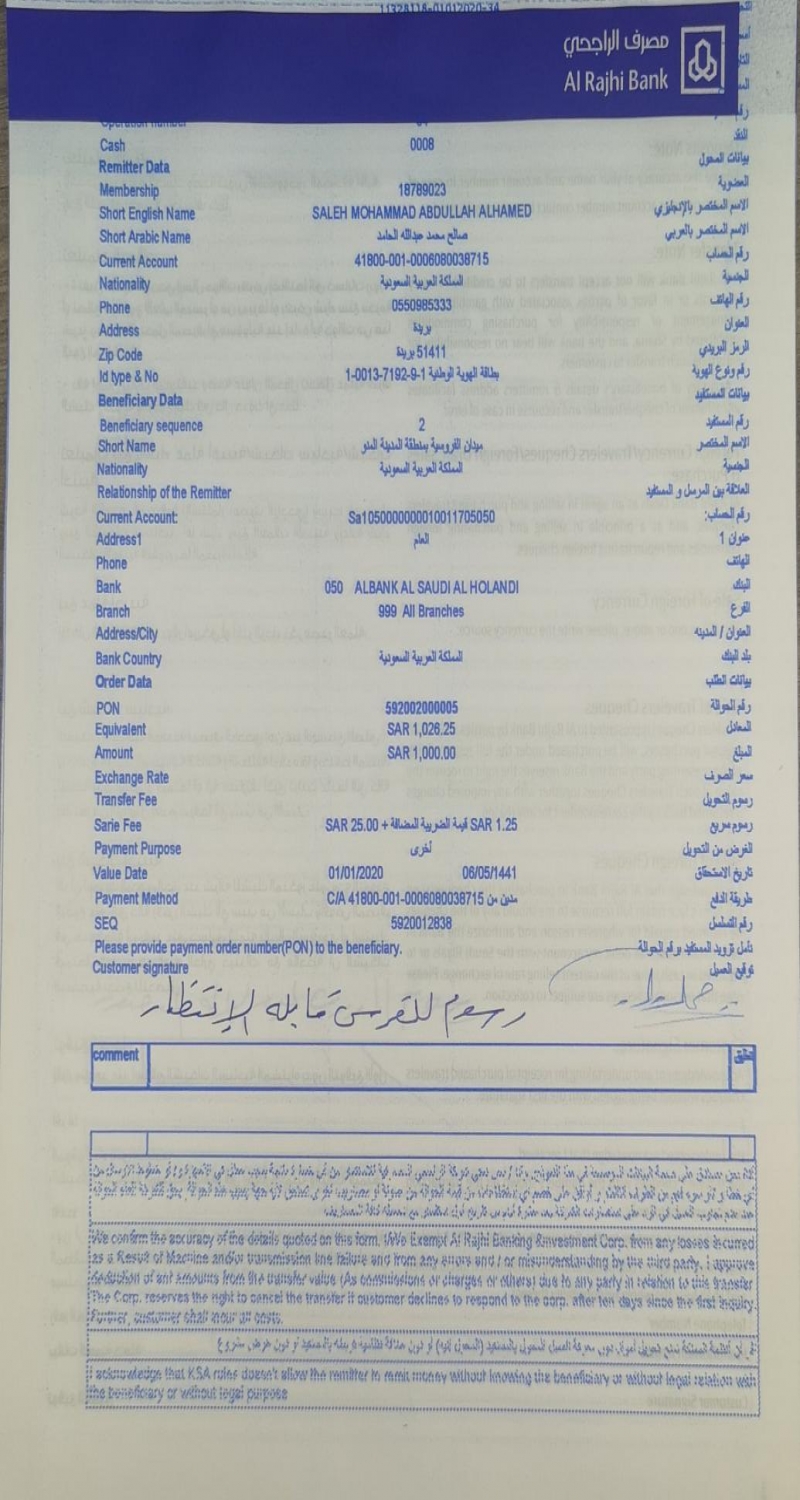 11328118-01012020-34
مصرف الراجحي
Al Rajhi Bank
Operation number
Cash 0008 النقد
Remitter Data بيانات المحول
Membership 18789023 العضوية
Short English Name SALEH MOHAMMAD ABDULLAH ALHAMED الاسم المختصر بالإنجليزي
Short Arabic Name صالح محمد عبدالله الحامد الاسم المختصر بالعربي
Current Account 41800-001-0006080038715 رقم الحساب
Nationality المملكة العربية السعودية الجنسية
Phone 0550985333 رقم الهاتف
Address بريدة العنوان
Zip Code 51411 بريدة الرمز البريدي
Id type & No بطاقة الهوية الوطنية 1-9-7192-0013-1 رقم ونوع الهوية
Beneficiary Data بيانات المستفيد
Beneficiary sequence 2 رقم المستفيد
Short Name ميدان الفروسية بمنطقة المدينة المنو الاسم المختصر
Nationality المملكة العربية السعودية الجنسية
Relationship of the Remitter العلاقة بين المرسل و المستفيد
Current Account: Sa1050000000010011705050 رقم الحساب:
Address1 العام عنوان 1
Phone الهاتف
Bank 050 ALBANK AL SAUDI AL HOLANDI البنك
Branch 999 All Branches الفرع
Address/City العنوان / المدينه
Bank Country المملكة العربية السعودية بلد البنك
Order Data بيانات الطلب
PON 592002000005 رقم الحوالة
Equivalent SAR 1,026.25 المعادل
Amount SAR 1,000.00 المبلغ
Exchange Rate سعر الصرف
Transfer Fee رسوم التحويل
Sarie Fee SAR 25.00 + قيمة الضريبة المضافة SAR 1.25 رسوم سريع
Payment Purpose أخرى الغرض من التحويل
Value Date 01/01/2020 06/05/1441 تاريخ الاستحقاق
Payment Method C/A 41800-001-0006080038715 مدين من طريقة الدفع
SEQ 5920012838 رقم التسلسل
Please provide payment order number(PON) to the beneficiary. نأمل تزويد المستفيد برقم الحوالة
Customer signature توقيع العميل
رسوم للفرس قابله الإنتظار
comment تعليق
We confirm the accuracy of the details quoted on this form. I/We Exempt Al Rajhi Banking &Investment Corp. from any losses incurred
as a Result of Machine and/or transmission line failure and from any errors and / or misunderstanding by the third party. I approve
deduction of any amounts from the transfer value (As commissions or charges or others) due to any party in relation to this transfer
The Corp. reserves the right to cancel the transfer if customer declines to respond to the corp. after ten days since the first inquiry.
Further, customer shall incur all costs.
I acknowledge that KSA rules doesn't allow the remitter to remit money without knowing the beneficiary or without legal relation with
the beneficiary or without legal purpose